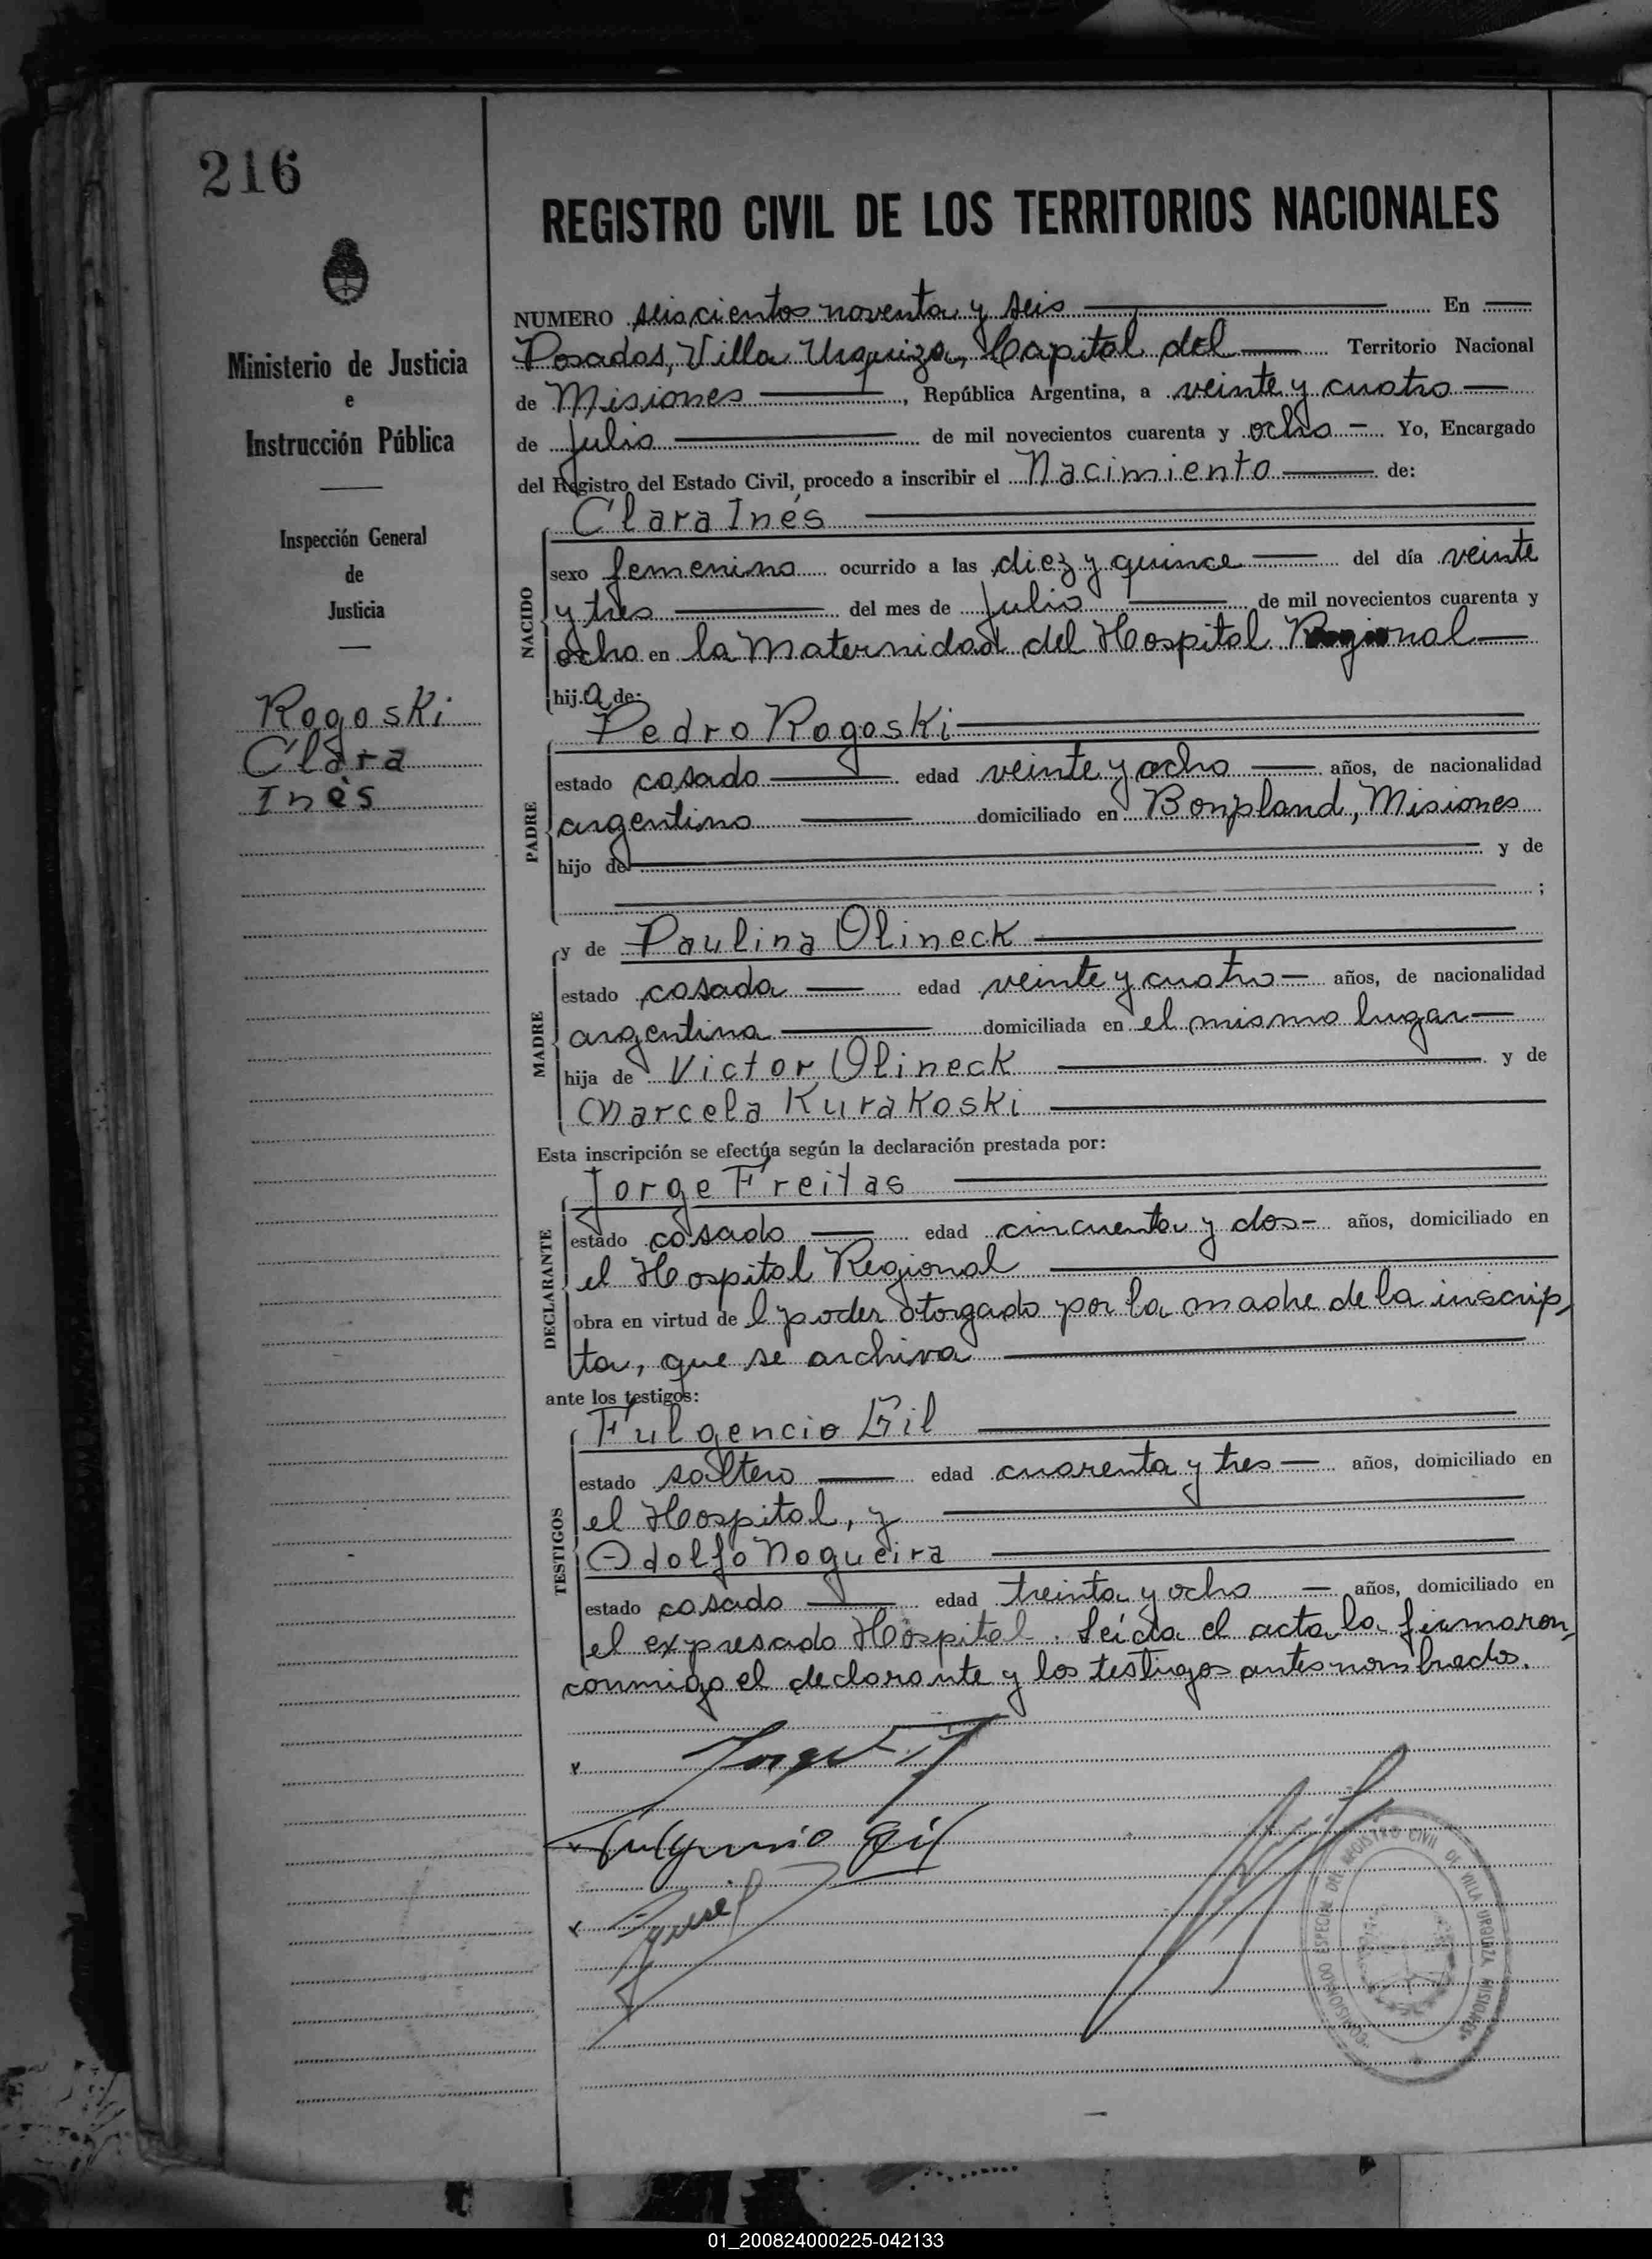 216
Ministerio de Justicia
e
Instrucción Pública
Inspección General
de
Justicia
Rogoski
Clara
Inès
REGISTRO CIVIL DE LOS TERRITORIOS NACIONALES
NUMERO seiscientos noventa y seis En
Posadas, Villa Urquiza, Capital del Territorio Nacional
de Misiones, República Argentina, a veinte y cuatro
de Julio de mil novecientos cuarenta y ocho Yo, Encargado
del Registro del Estado Civil, procedo a inscribir el Nacimiento de:
Clara Inés
NACIDO
sexo femenino ocurrido a las diez y quince del día veinte
y tres del mes de Julio de mil novecientos cuarenta y
ocho en la Maternidad del Hospital Regional
hija de:
Pedro Rogoski
PADRE
estado casado edad veinte y ocho años, de nacionalidad
argentino domiciliado en Bonpland, Misiones
hijo de y de
;
y de Paulina Olineck
MADRE
estado casada edad veinte y cuatro años, de nacionalidad
argentina domiciliada en el mismo lugar
hija de Victor Olineck y de
Marcela Kurakoski
Esta inscripción se efectúa según la declaración prestada por:
Jorge Freitas
DECLARANTE
estado casado edad cincuenta y dos años, domiciliado en
el Hospital Regional
obra en virtud de l poder otorgado por la madre de la inscrip,
ta, que se archiva
ante los testigos:
Fulgencio Gil
TESTIGOS
estado soltero edad cuarenta y tres años, domiciliado en
el Hospital, y
Adolfo Nogueira
estado casado edad treinta y ocho años, domiciliado en
el expresado Hospital. Leída el acta la firmaron,
conmigo el declarante y los testigos antes nombrados.
Fulgencio Gil
COMISIONADO ESPECIAL DEL REGISTRO CIVIL DE VILLA URQUIZA MISIONES
01_200824000225-042133